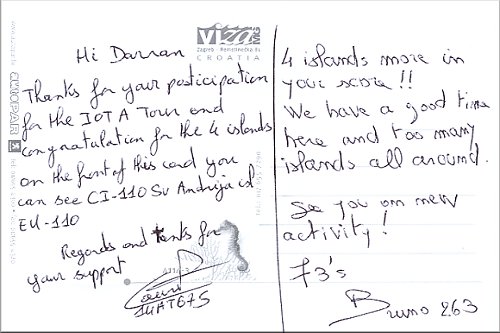 VIZA MG
Zagreb
CROATIA
Hi Darran
Thanks for your participation
for the IOTA Tour and
congratulation for the 4 islands
on the front of this card you
can see CI-110 Sv Andrija id
EU-110
Regards and tanks for
your support
14AT675
4 islands more in
your score!!
We have a good time
here and too many
islands all around.
See you on new
activity!
73's
Bruno 263
EUROPAPIER